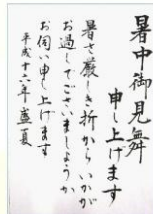 暑中御見舞
申し上げます
暑さ厳しき折からいかが
お過しでございましょうか
お伺い申し上げます
平成十六年盛夏